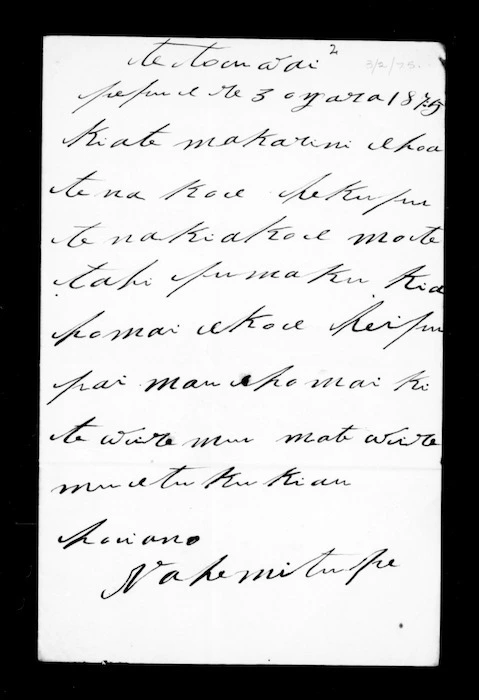 2
3/2/75.
pepuere 3 o nga ra 1875
kiate makarini ehoa
tena koe hekupu
tenakiakoe mote
tahi pu maku kia
homai e koe heipu
pai mau e homai ki
te wiremu mate wire
mu e tuku kiau
heoiano
Na hemi tupe